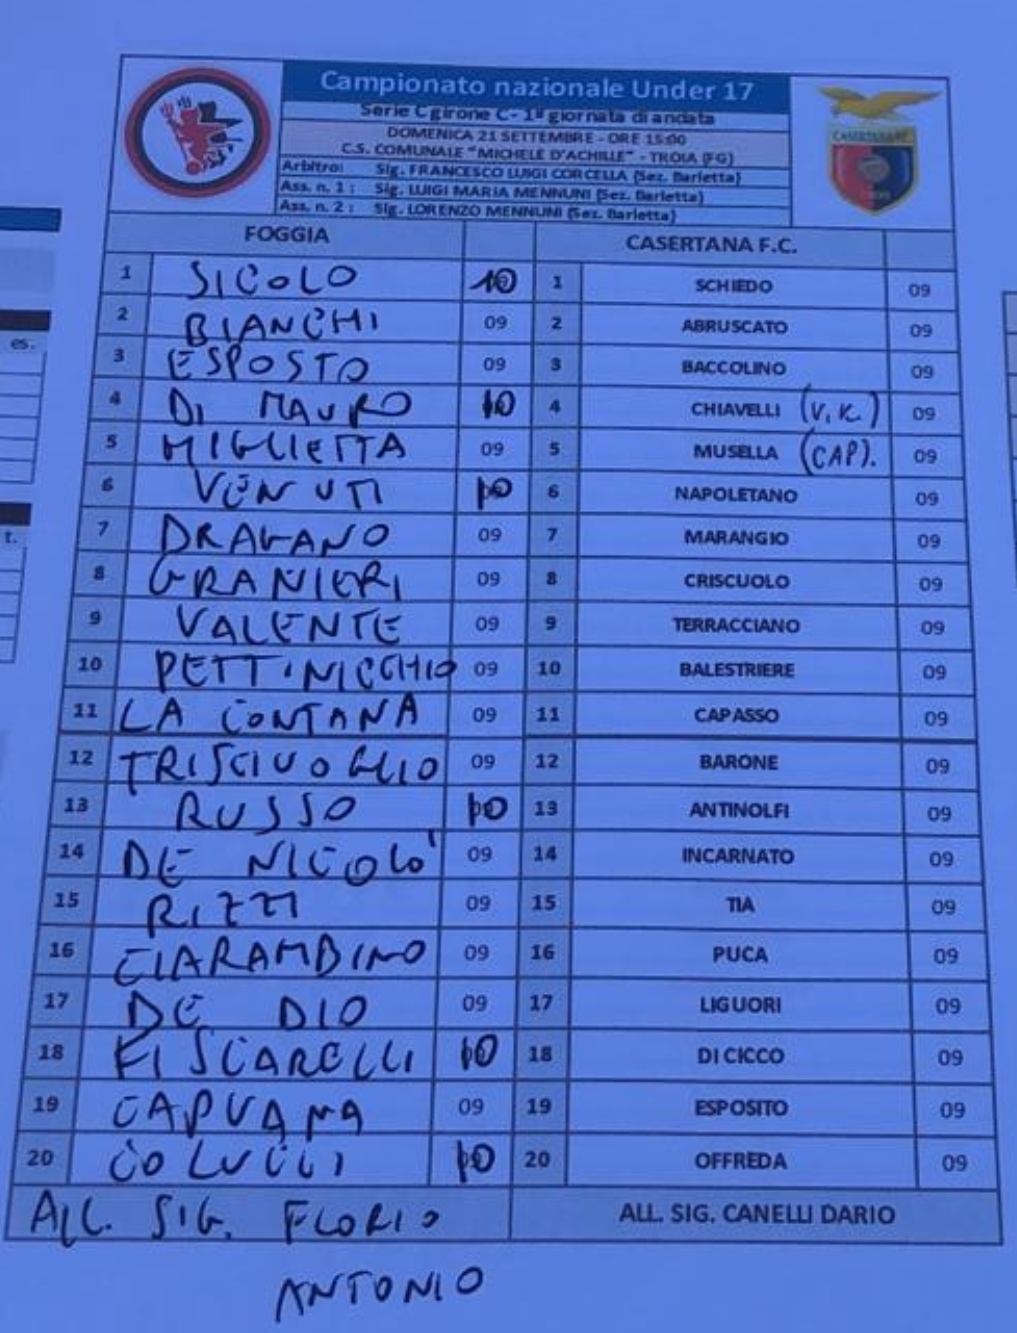 Campionato nazionale Under 17
Serie C girone C - 1ª giornata di andata
DOMENICA 21 SETTEMBRE - ORE 15:00
C.S. COMUNALE "MICHELE D'ACHILLE" - TROIA (FG)
Arbitro: Sig. FRANCESCO LUIGI CORCELLA (Sez. Barletta)
Ass. n. 1 : Sig. LUIGI MARIA MENNUNI (Sez. Barletta)
Ass. n. 2 : Sig. LORENZO MENNUNI (Sez. Barletta)
CASERTANA FC
FOGGIA CASERTANA F.C.
1 SICOLO 10 1 SCHIEDO 09
2 BIANCHI 09 2 ABRUSCATO 09
es.
3 ESPOSTO 09 3 BACCOLINO 09
4 DI MAURO 10 4 CHIAVELLI (V.K.) 09
5 MIGLIETTA 09 5 MUSELLA (CAP). 09
6 VENUTI 10 6 NAPOLETANO 09
t.
7 DRAGANO 09 7 MARANGIO 09
8 GRANIERI 09 8 CRISCUOLO 09
9 VALENTE 09 9 TERRACCIANO 09
10 PETTINICCHIO 09 10 BALESTRIERE 09
11 LA CONTANA 09 11 CAPASSO 09
12 TRISCIUOGLIO 09 12 BARONE 09
13 RUSSO 10 13 ANTINOLFI 09
14 DE NICOLO' 09 14 INCARNATO 09
15 RIZZI 09 15 TIA 09
16 CIARAMBINO 09 16 PUCA 09
17 DE DIO 09 17 LIGUORI 09
18 FISCARELLI 10 18 DI CICCO 09
19 CAPUANA 09 19 ESPOSITO 09
20 COLUCCI 10 20 OFFREDA 09
ALL. SIG. FLORIO ALL. SIG. CANELLI DARIO
ANTONIO